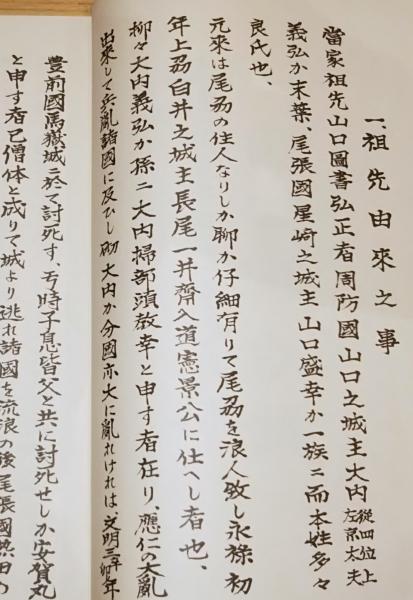 一、祖先由來之事
當家祖先山口圖書弘正者周防國山口之城主大内從四位上左京大夫
義弘か末葉、尾張國星崎之城主山口盛幸か一族ニ而本姓多々
良氏也、
元來は尾刕の住人なりしか聊か仔細有りて尾刕を浪人致し永禄初
年上刕白井之城主長尾一井齊入道憲景公に仕へし者也、
柳々大内義弘か孫ニ大内掃部頭教幸と申す者在り、應仁の大亂
出來して兵亂諸國に及ひし砌大内か分國亦大に亂れけれは、文明三辛卯年
豊前國馬嶽城ニ於て討死す、丂時子息皆父と共に討死せしか安賀丸
と申す者已僧体と成りて城より逃れ諸國を流浪の後尾張國